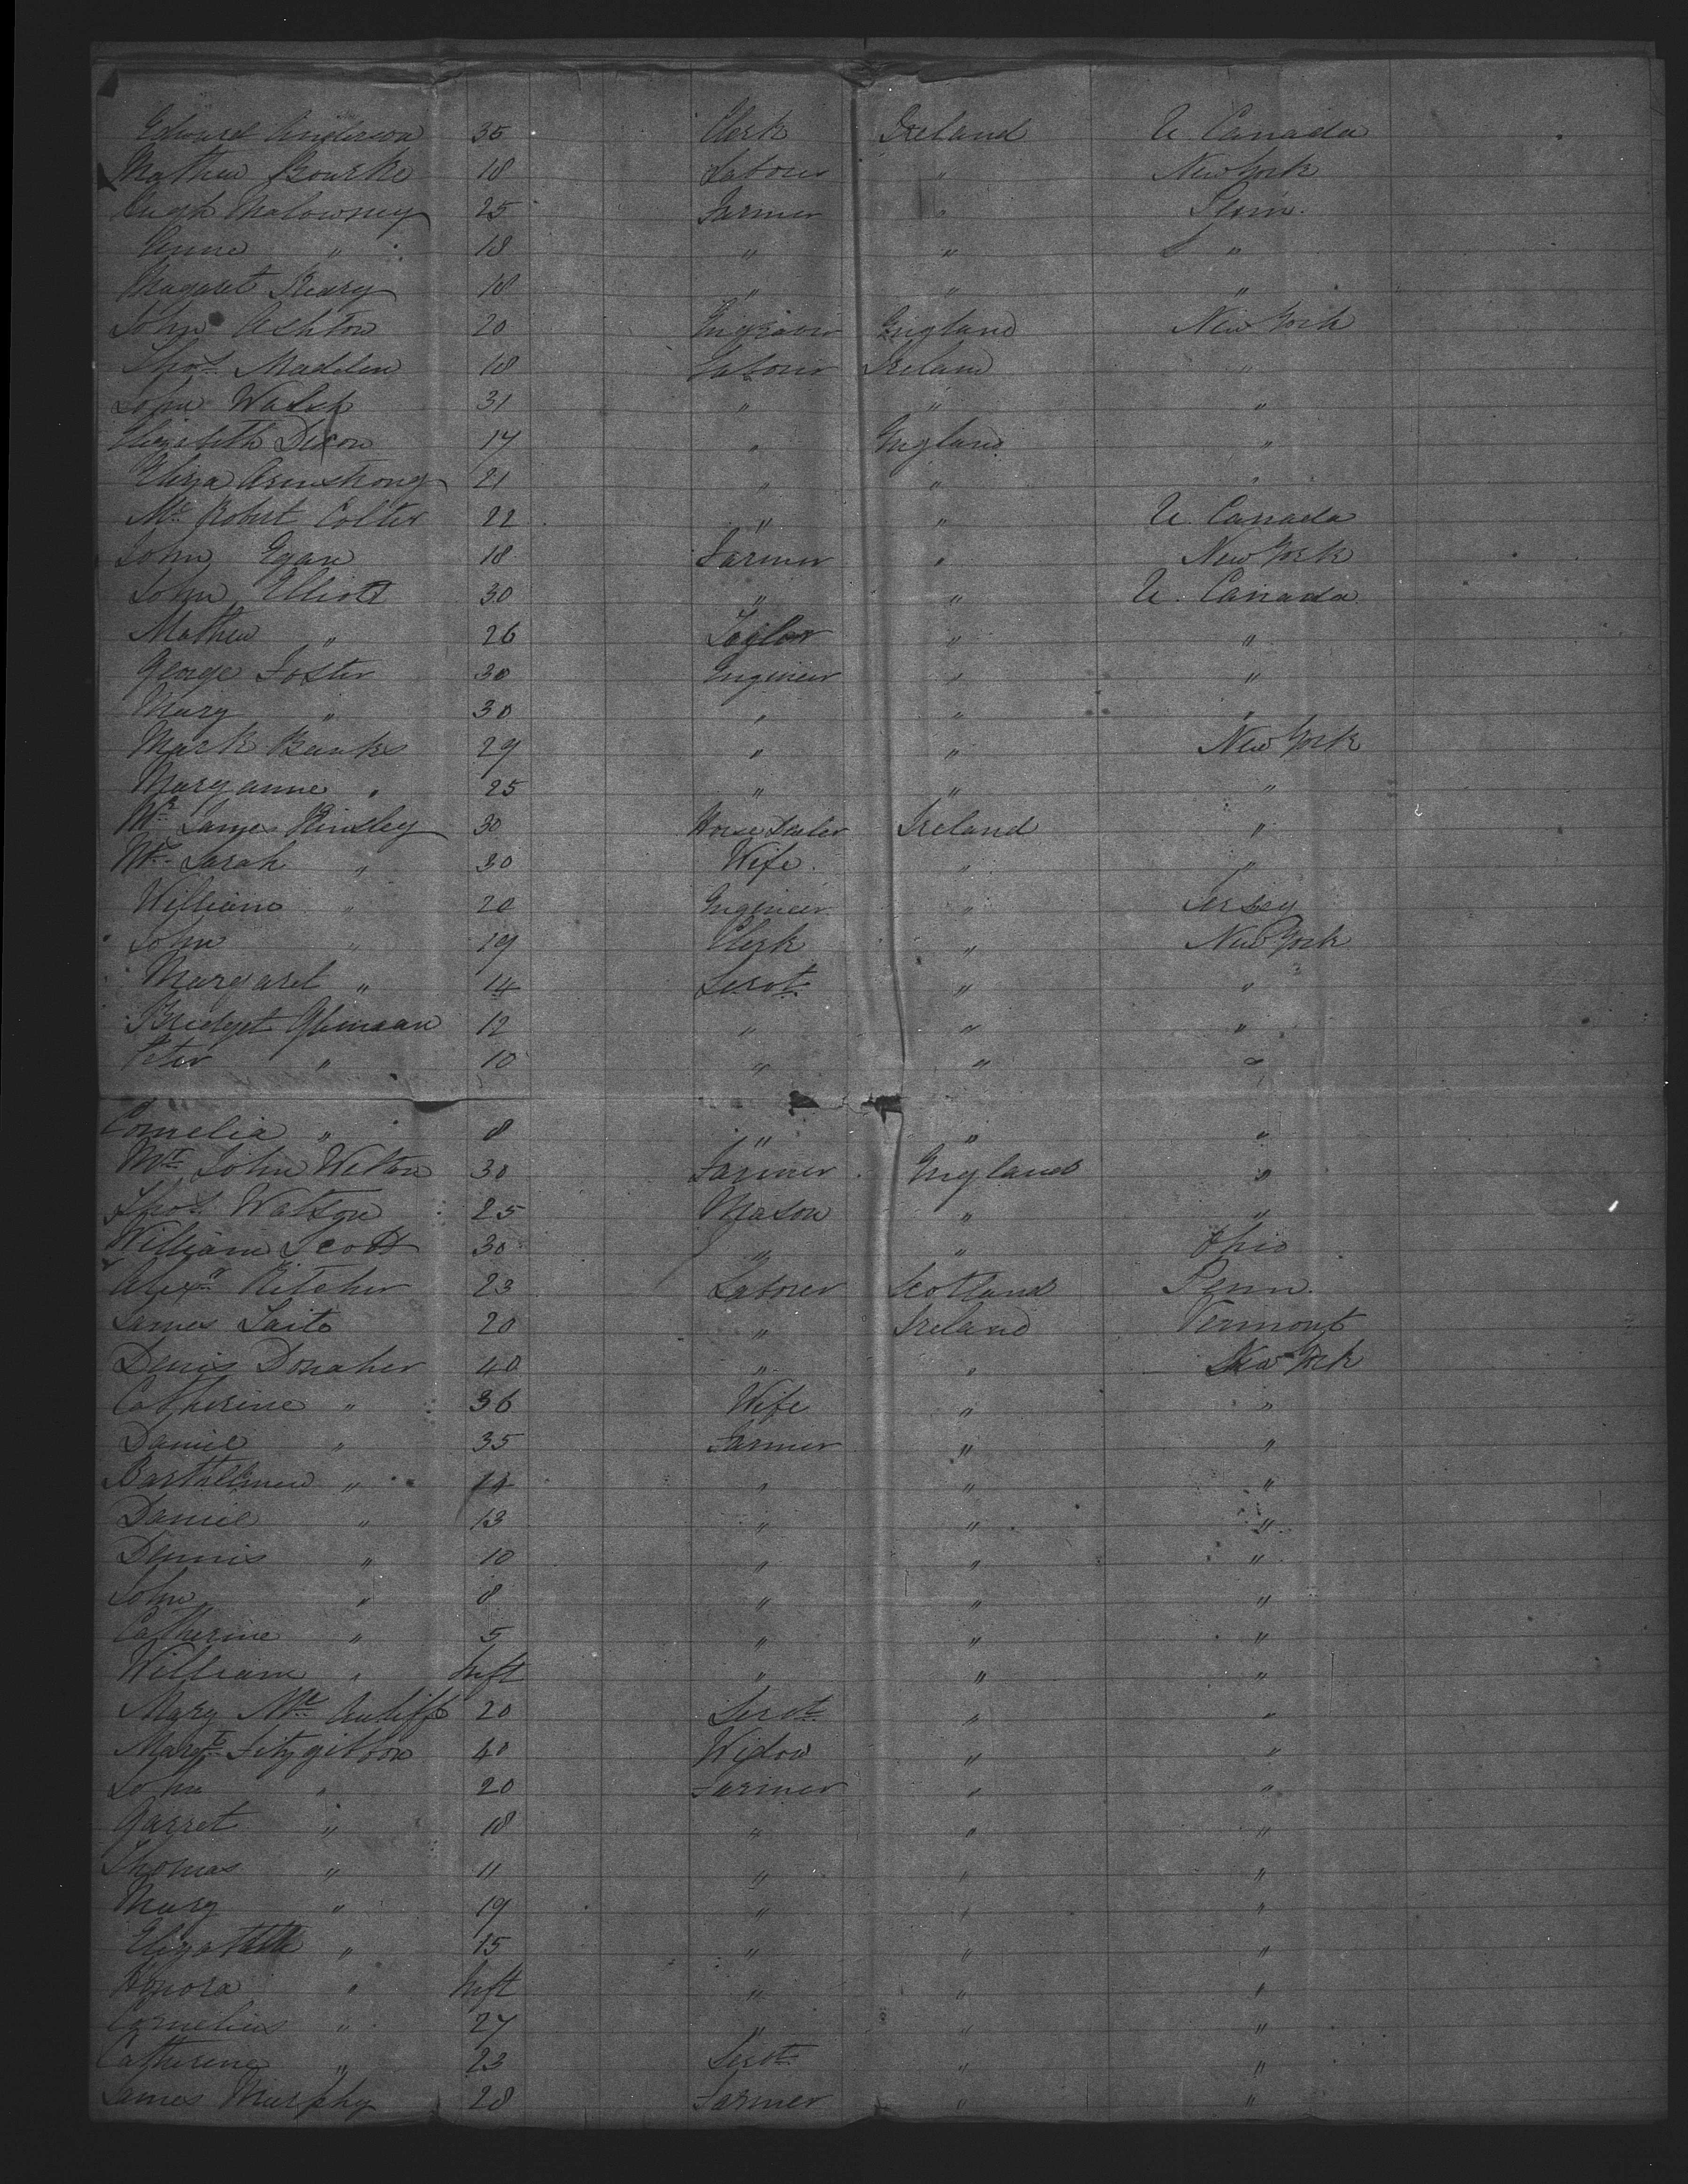 Edward Anderson 35 Clerk Ireland U Canada
Mathew Bourke 18 Laborer " New York
Hugh Malowney 25 Farmer " Penn.
Anne " 18 " " "
Magaret Keary 18 " " "
John Ashton 20 Engraver England New York
Thos. Madden 18 Laborer Ireland "
John Walsh 31 " " "
Elizabeth Dixon 17 " England "
Eliza Armstrong 21 " " "
Mr. Robert Colter 22 " " U. Canada
John Egan 18 Farmer " New York
John Elliott 30 " " U. Canada
Mathew " 26 Taylor " "
George Foster 30 Engineer " "
Mary " 30 " " "
Mark Banks 29 " " New York
Maryanne " 25 " " "
Mr. James Kinsley 30 Horse Dealer Ireland "
Mrs. Sarah " 30 Wife " "
William " 20 Engineer " Jersey
John " 19 Clerk " New York
Margaret " 14 Servt. " "
Bridget 12 " " "
Peter " 10 " " "
Cornelia " 8 " " "
Mr. John Weton 30 Farmer England "
Thos. Watson 25 Mason " "
William Scott 30 " " Ohio
Alexr. Kitcher 23 Laborer Scotland Penn.
James Taite 20 " Ireland Vermont
Denis Donaher 40 " " New York
Catherine " 36 Wife " "
Daniel " 35 Farmer " "
Barthelmew " 14 " " "
Daniel " 13 " " "
Dennis " 10 " " "
John " 8 " " "
Catherine " 5 " " "
William " Inft " " "
Mary Mc. Auliffe 20 Servt. " "
Margt. Fitzgibbon 40 Widow " "
John " 20 Farmer " "
Garret " 18 " " "
Thomas " 11 " " "
Mary " 19 " " "
Elizabeth " 15 " " "
Honora " Inft " " "
Cornelius " 27 " " "
Catherine " 23 Servt. " "
James Murphy 28 Farmer " "